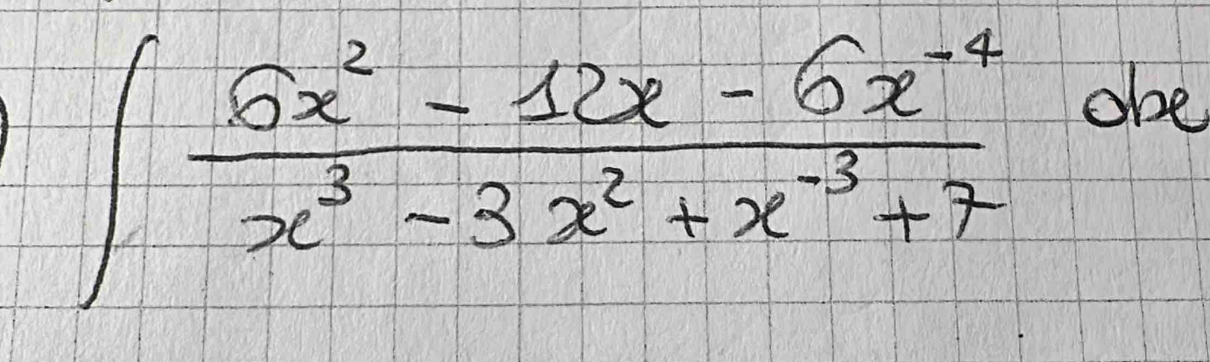 ) ∫ (6x² - 12x - 6x⁻⁴) / (x³ - 3x² + x⁻³ + 7) dx